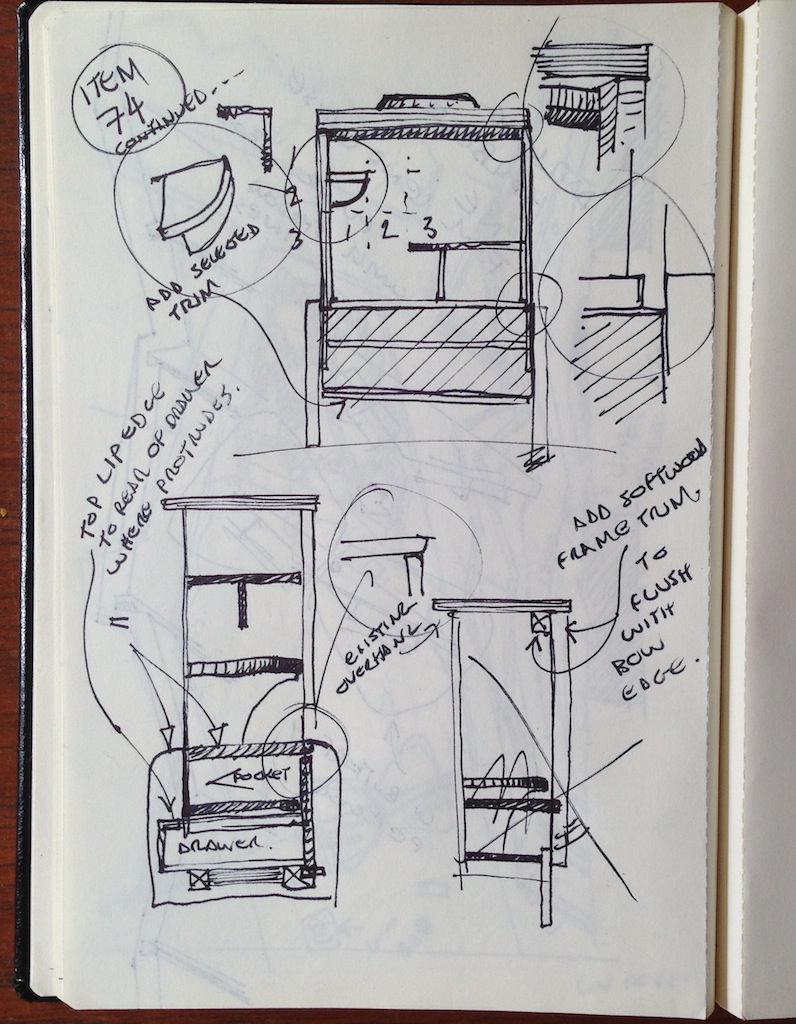 ITEM
74
CONTINUED...
1
2
3
1 2 3
ADD SELECTED
TRIM
TOP LIP EDGE
TO REAR OF DRAWER
WHERE PROTRUDES.
EXISTING
OVERHANG
ADD SOFTWOOD
FRAME TRIM.
TO
FLUSH
WITH
BOW
EDGE.
POCKET
DRAWER.